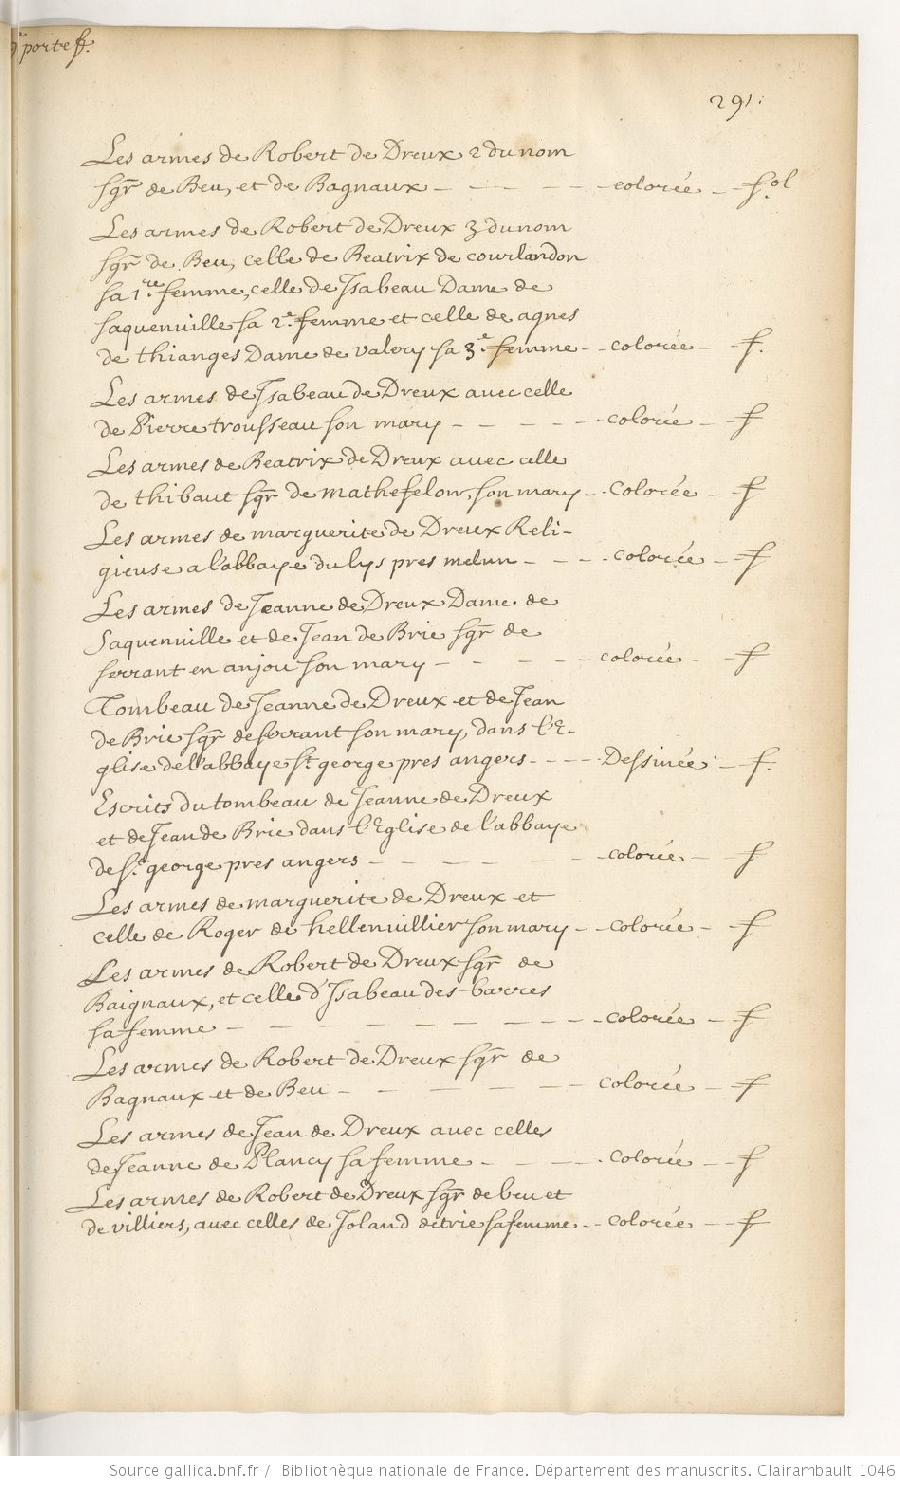 portef.
291.
Les armes de Robert de Dreux 2 du nom
sgr de Beu, et de Bagnaux - - - - - colorée - fol
Les armes de Robert de Dreux 3 du nom
sgr de Beu, celle de Beatrix de courlandon
sa 1.re femme, celle de Isabeau Dame de
saquenuille sa 2.e femme et celle de agnes
de thianges Dame de valery sa 3.e femme - - colorée - f.
Les armes de Isabeau de Dreux auec celle
de Pierre trousseau son mary - - - - - colorée - f
Les armes de Beatrix de Dreux auec celle
de thibaut sgr de mathefelon, son mary - - Colorée - f
Les armes de marguerite de Dreux Reli-
gieuse a l'abbaye du lys pres melun - - - colorée - f
Les armes de Jeanne de Dreux Dame de
Saquenuille et de Jean de Brie sgr de
serrant en anjou son mary - - - - - colorée - f
Tombeau de Jeanne de Dreux et de Jean
de Brie sgr de serrant son mary, dans l'E-
glise de l'abbaye st george pres angers - - - - Dessinée - f.
Escrits du tombeau de Jeanne de Dreux
et de Jean de Brie dans l'Eglise de l'abbaye
de st george pres angers - - - - - colorée - f
Les armes de marguerite de Dreux et
celle de Roger de hellenuillier son mary - - colorée - f
Les armes de Robert de Dreux sgr de
Baignaux, et celle d'Isabeau des barres
sa femme - - - - - - - - colorée - f
Les armes de Robert de Dreux sgr de
Bagnaux et de Beu - - - - - - colorée - f
Les armes de Jean de Dreux auec celles
de Jeanne de Plancy sa femme - - - - Colorée - f
Les armes de Robert de Dreux sgr de beu et
de villiers, auec celles de Joland de trie sa femme - - colorée - f
Source gallica.bnf.fr / Bibliothèque nationale de France. Département des manuscrits. Clairambault 1046